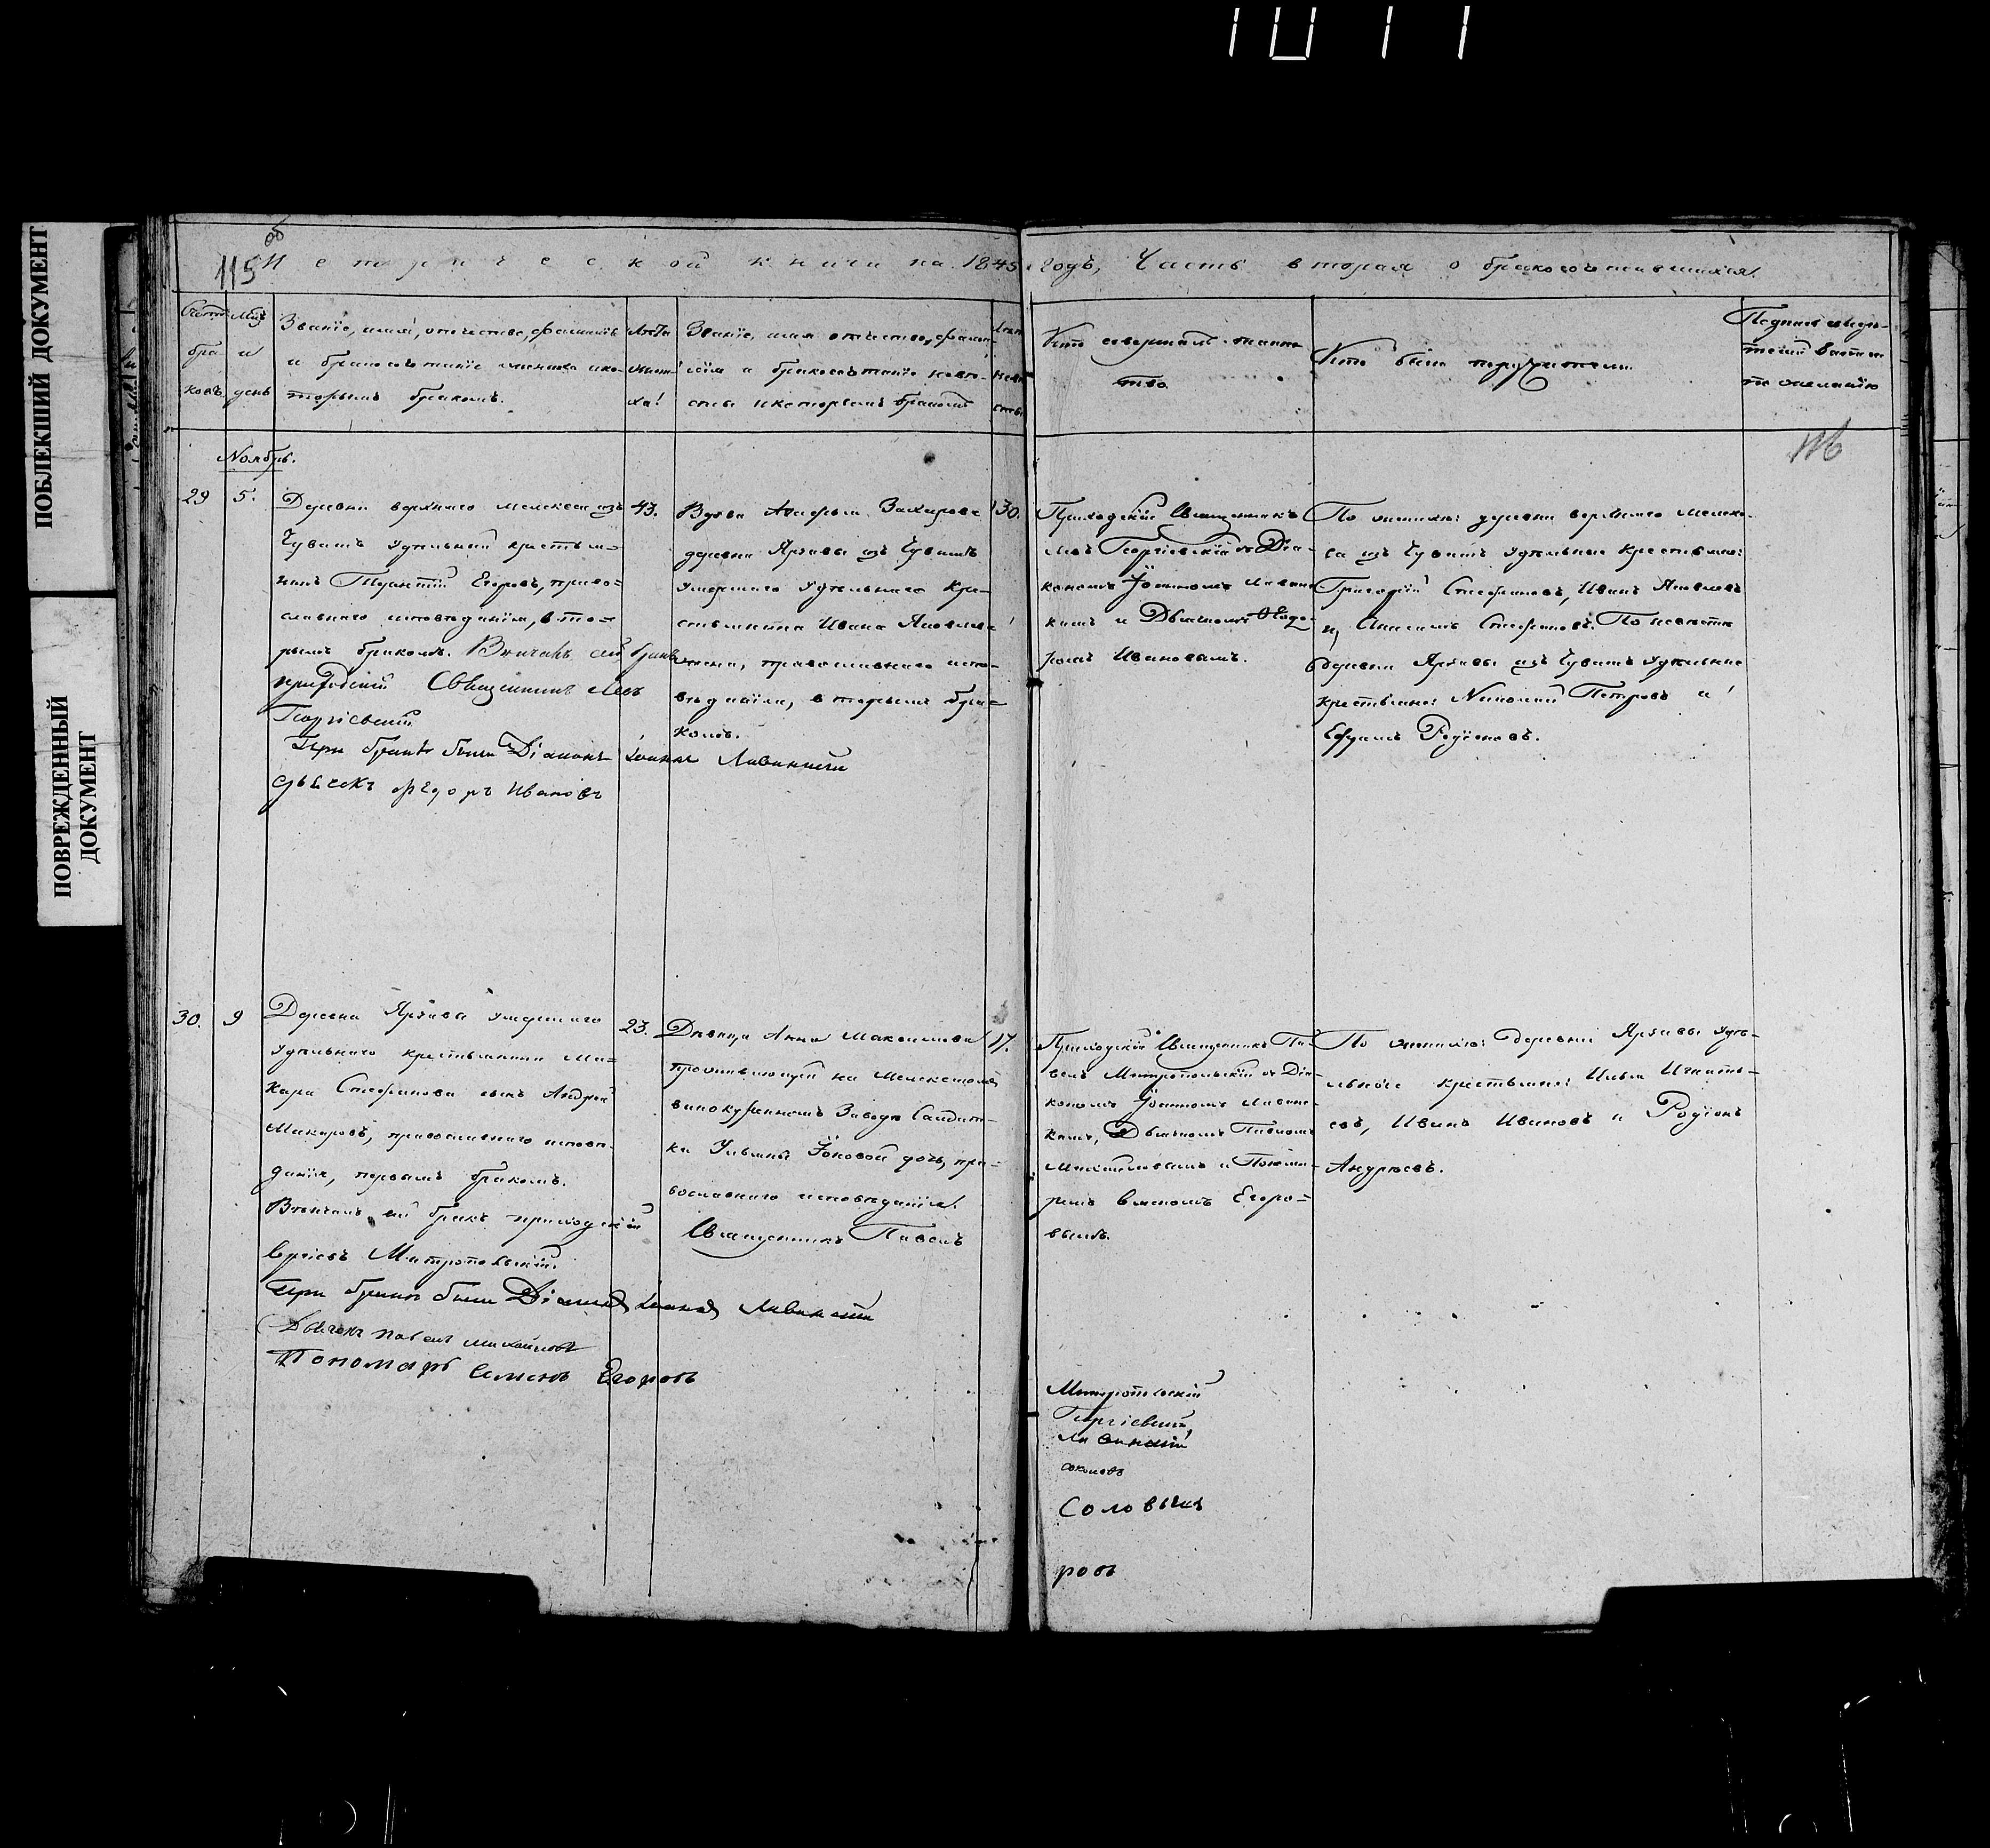 1011
ПОБЛЕКШИЙ ДОКУМЕНТ
ПОВРЕЖДЕННЫЙ
ДОКУМЕНТ
об
115
Метрической книги на 1845 годъ, Часть вторая о бракосочетавшихся.
Счетъ
бра
ковъ
Мцъ
и
день
Званіе, имя, отчество, фамилія
и
торымъ бракомъ.
Лѣта
жени
ха
Званіе, имя отчество, фами-
лія и невѣ-
сты и которымъ бракомъ
Кто совершалъ таин
ство
Кто были поручители
116
Ноябрь.
29
5.
Деревни верхняго мелекеса изъ
Чувашъ удѣльный крестья-
нинъ Егоровъ, право-
славнаго исповѣданія, вто-
рымъ бракомъ. Вѣнчалъ сей бракъ
приходскій Священникъ Левъ
Георгіевскій
При бракѣ были Діаконъ Іоаннъ Ливанскій
дьячекъ Ѳедоръ Ивановъ
43.
Вдова Захарова
деревни из Чувашъ
умершаго удѣльнаго кре-
стьянина Ивана Яковлева
жена, православнаго испо-
вѣданія, вторымъ бра-
комъ.
30.
Приходскій Священникъ
Левъ Георгіевскій съ Діа-
кономъ Іоанномъ Ливанс
кимъ и Дьячкомъ Ѳедо-
ромъ Ивановымъ.
По женихѣ: деревни верхняго мелеке-
са изъ Чувашъ удѣльные крестьяне:
Григорій Стефановъ, Иванъ Яковлевъ
и Стефановъ. По невѣстѣ
деревни изъ Чувашъ удѣльные
крестьяне: Николай Петровъ и
Ефремъ Родіоновъ.
30.
9
Деревни умершаго
удѣльнаго крестьянина Ма-
кара Стефанова сынъ Андрей
Макаровъ, православнаго исповѣ-
данія, первымъ бракомъ.
Вѣнчалъ сей бракъ приходскій
Священникъ Павелъ
Митропольскій.
При бракѣ были Діаконъ Іоаннъ Ливанскій
Дьячекъ Павелъ Михайловъ
Пономарь Семенъ Егоровъ
23.
Дѣвица Анна Максимова
проживающей на Мелекескомъ
винокуренномъ Заводѣ Солдат-
ки Ульяны дочь, пра-
вославнаго исповѣданія.
17.
Приходскій Священникъ Па-
велъ Митропольскій съ Діа-
кономъ Іоанномъ Ливанс-
кимъ, Дьячкомъ Павломъ
Михайловымъ и Понома-
ремъ Семеномъ Егоро-
вымъ.
По женихѣ: деревни удѣ-
льные крестьяне: Илья Игнать-
евъ, Иванъ Ивановъ и Родіонъ
Андреевъ.
Митропольскій
Георгіевскій
Ливанскій
Соколовъ
Соловьевъ
ровъ